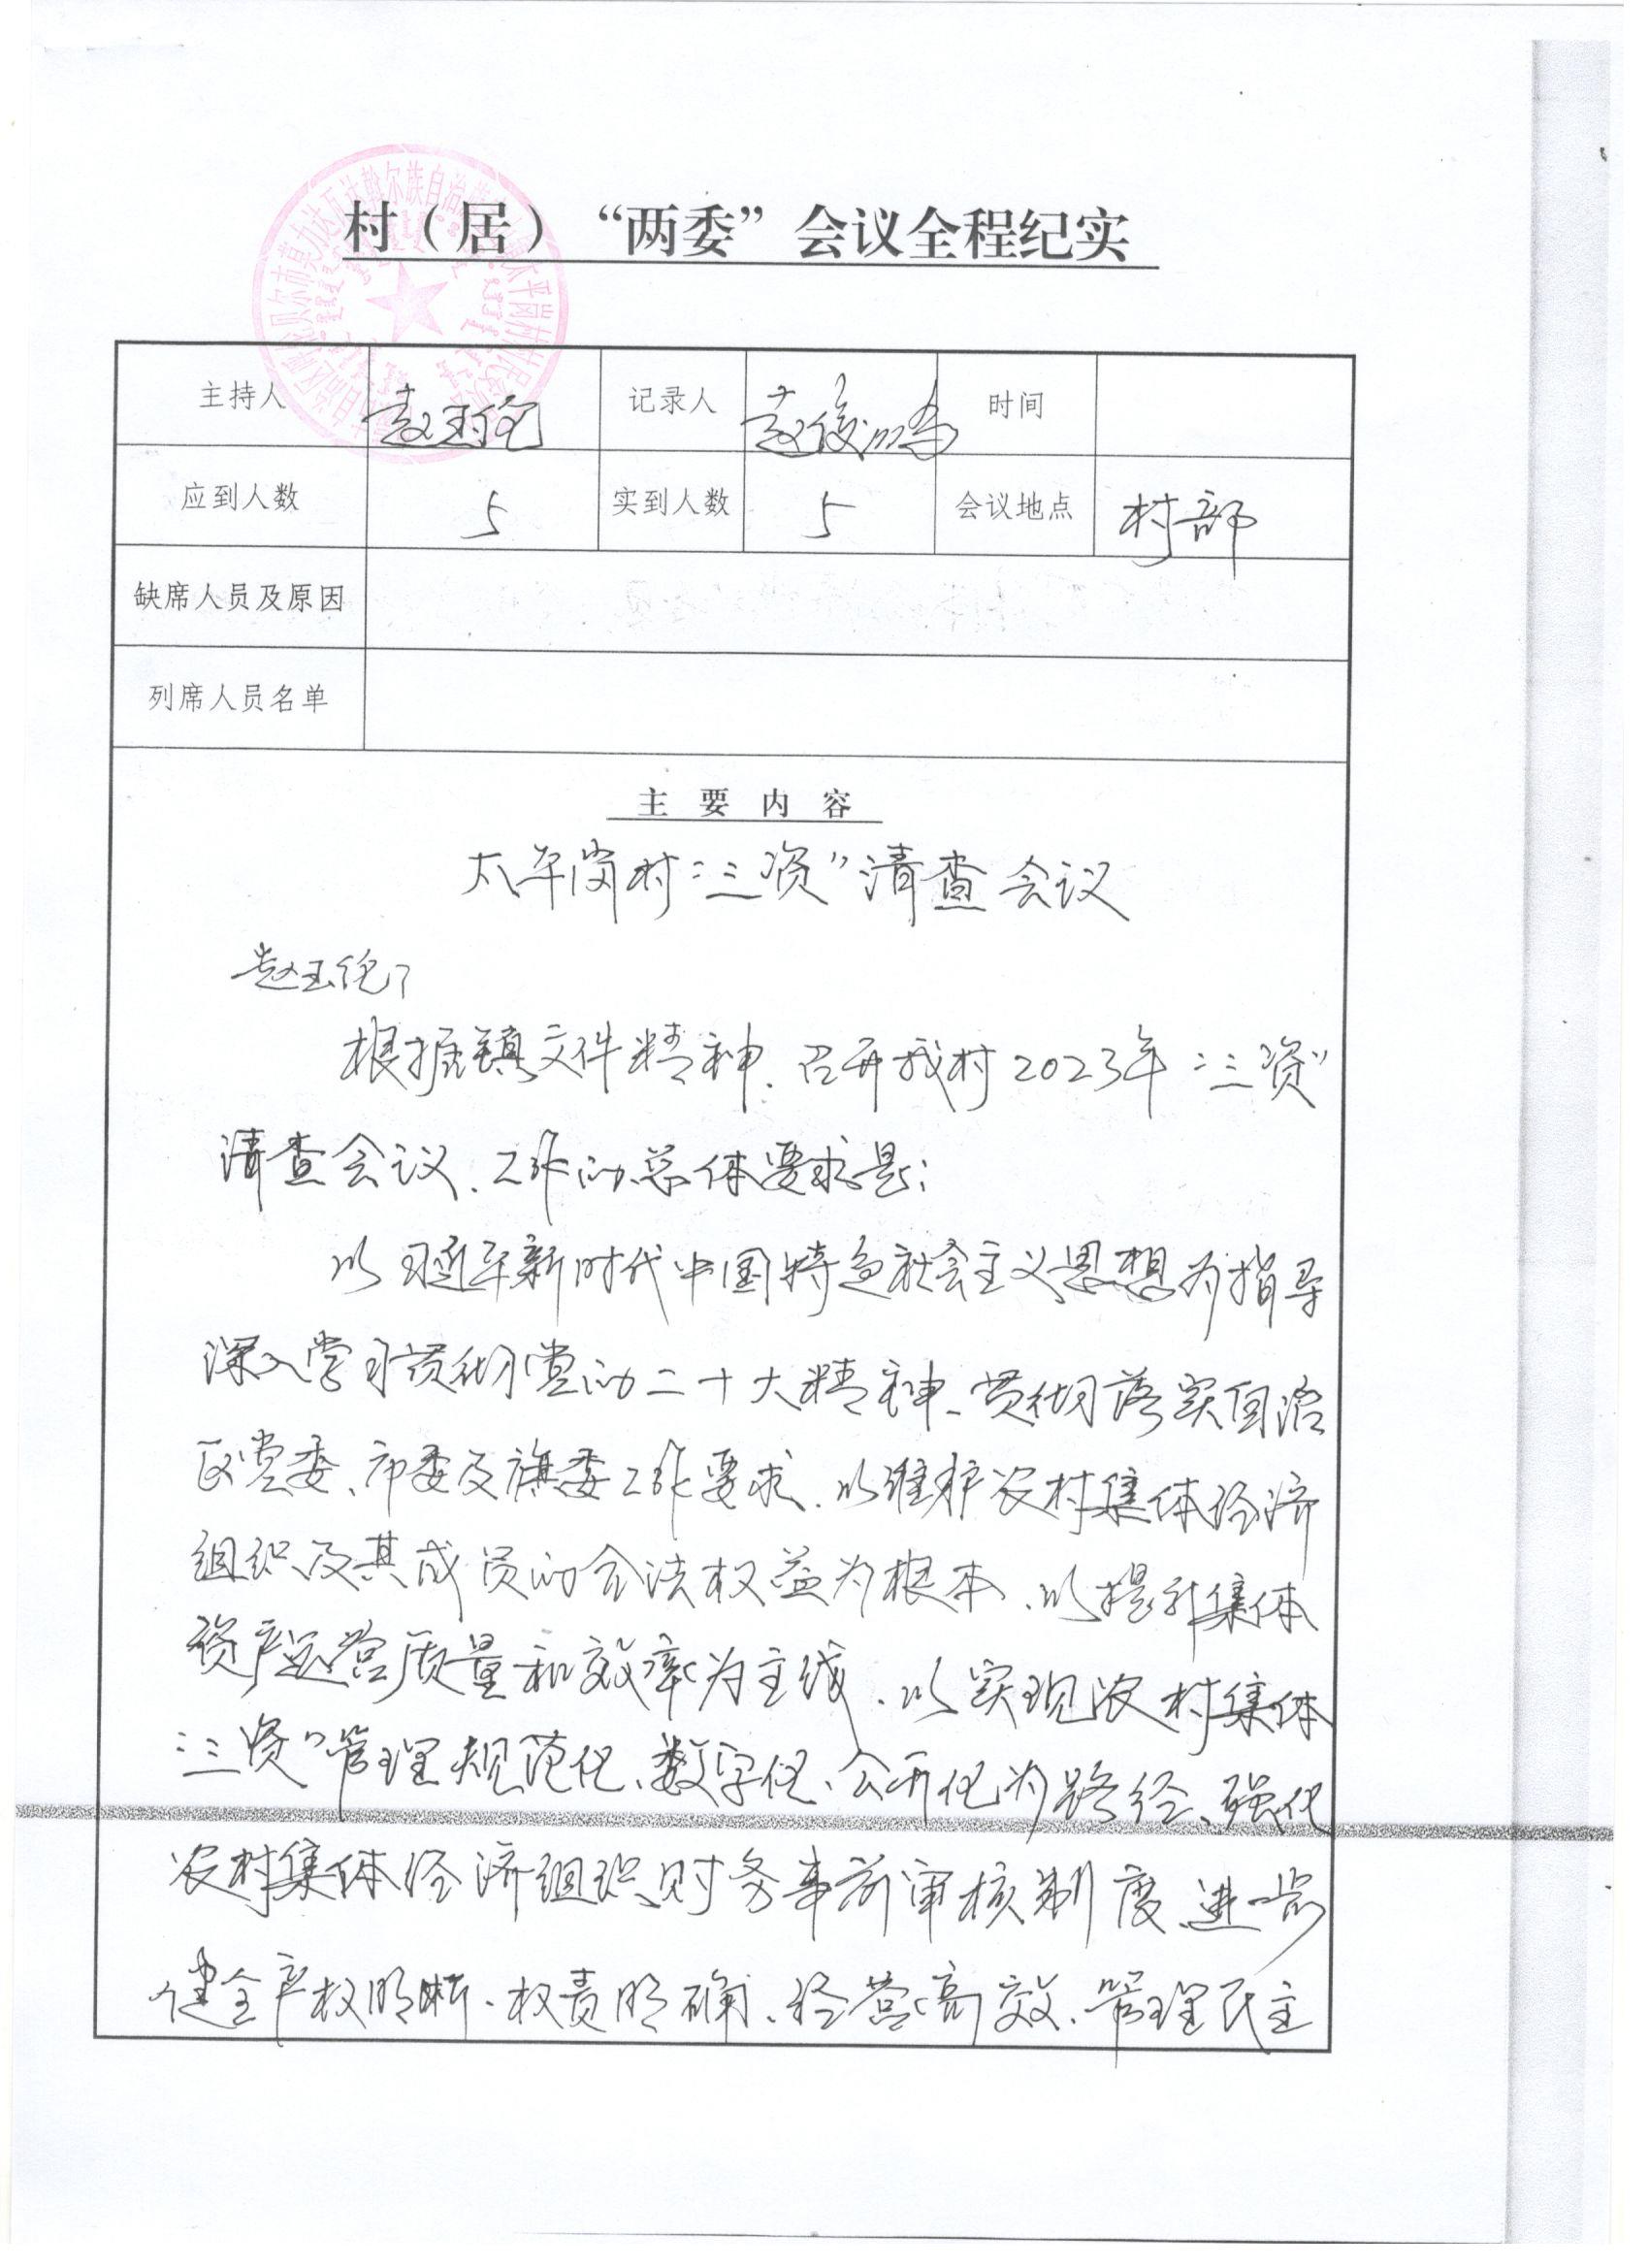 村（居）“两委”会议全程纪实
主持人 赵玉伦 记录人 赵俊鸣 时间
应到人数 5 实到人数 5 会议地点 村部
缺席人员及原因
列席人员名单
主要内容
太平岗村“三资”清查会议
赵玉伦：
根据镇文件精神、召开我村2023年“三资”
清查会议、工作的总体要求是：
以习近平新时代中国特色社会主义思想为指导
深入学习贯彻党的二十大精神、贯彻落实自治
区党委、市委及旗委工作要求、以维护农村集体经济
组织及其成员的合法权益为根本、以提升集体
资产运营质量和效率为主线、以实现农村集体
“三资”管理规范化、数字化、公开化为路经、强化
农村集体经济组织财务事前审核制度、进一步
健全产权明晰、权责明确、经营高效、管理民主